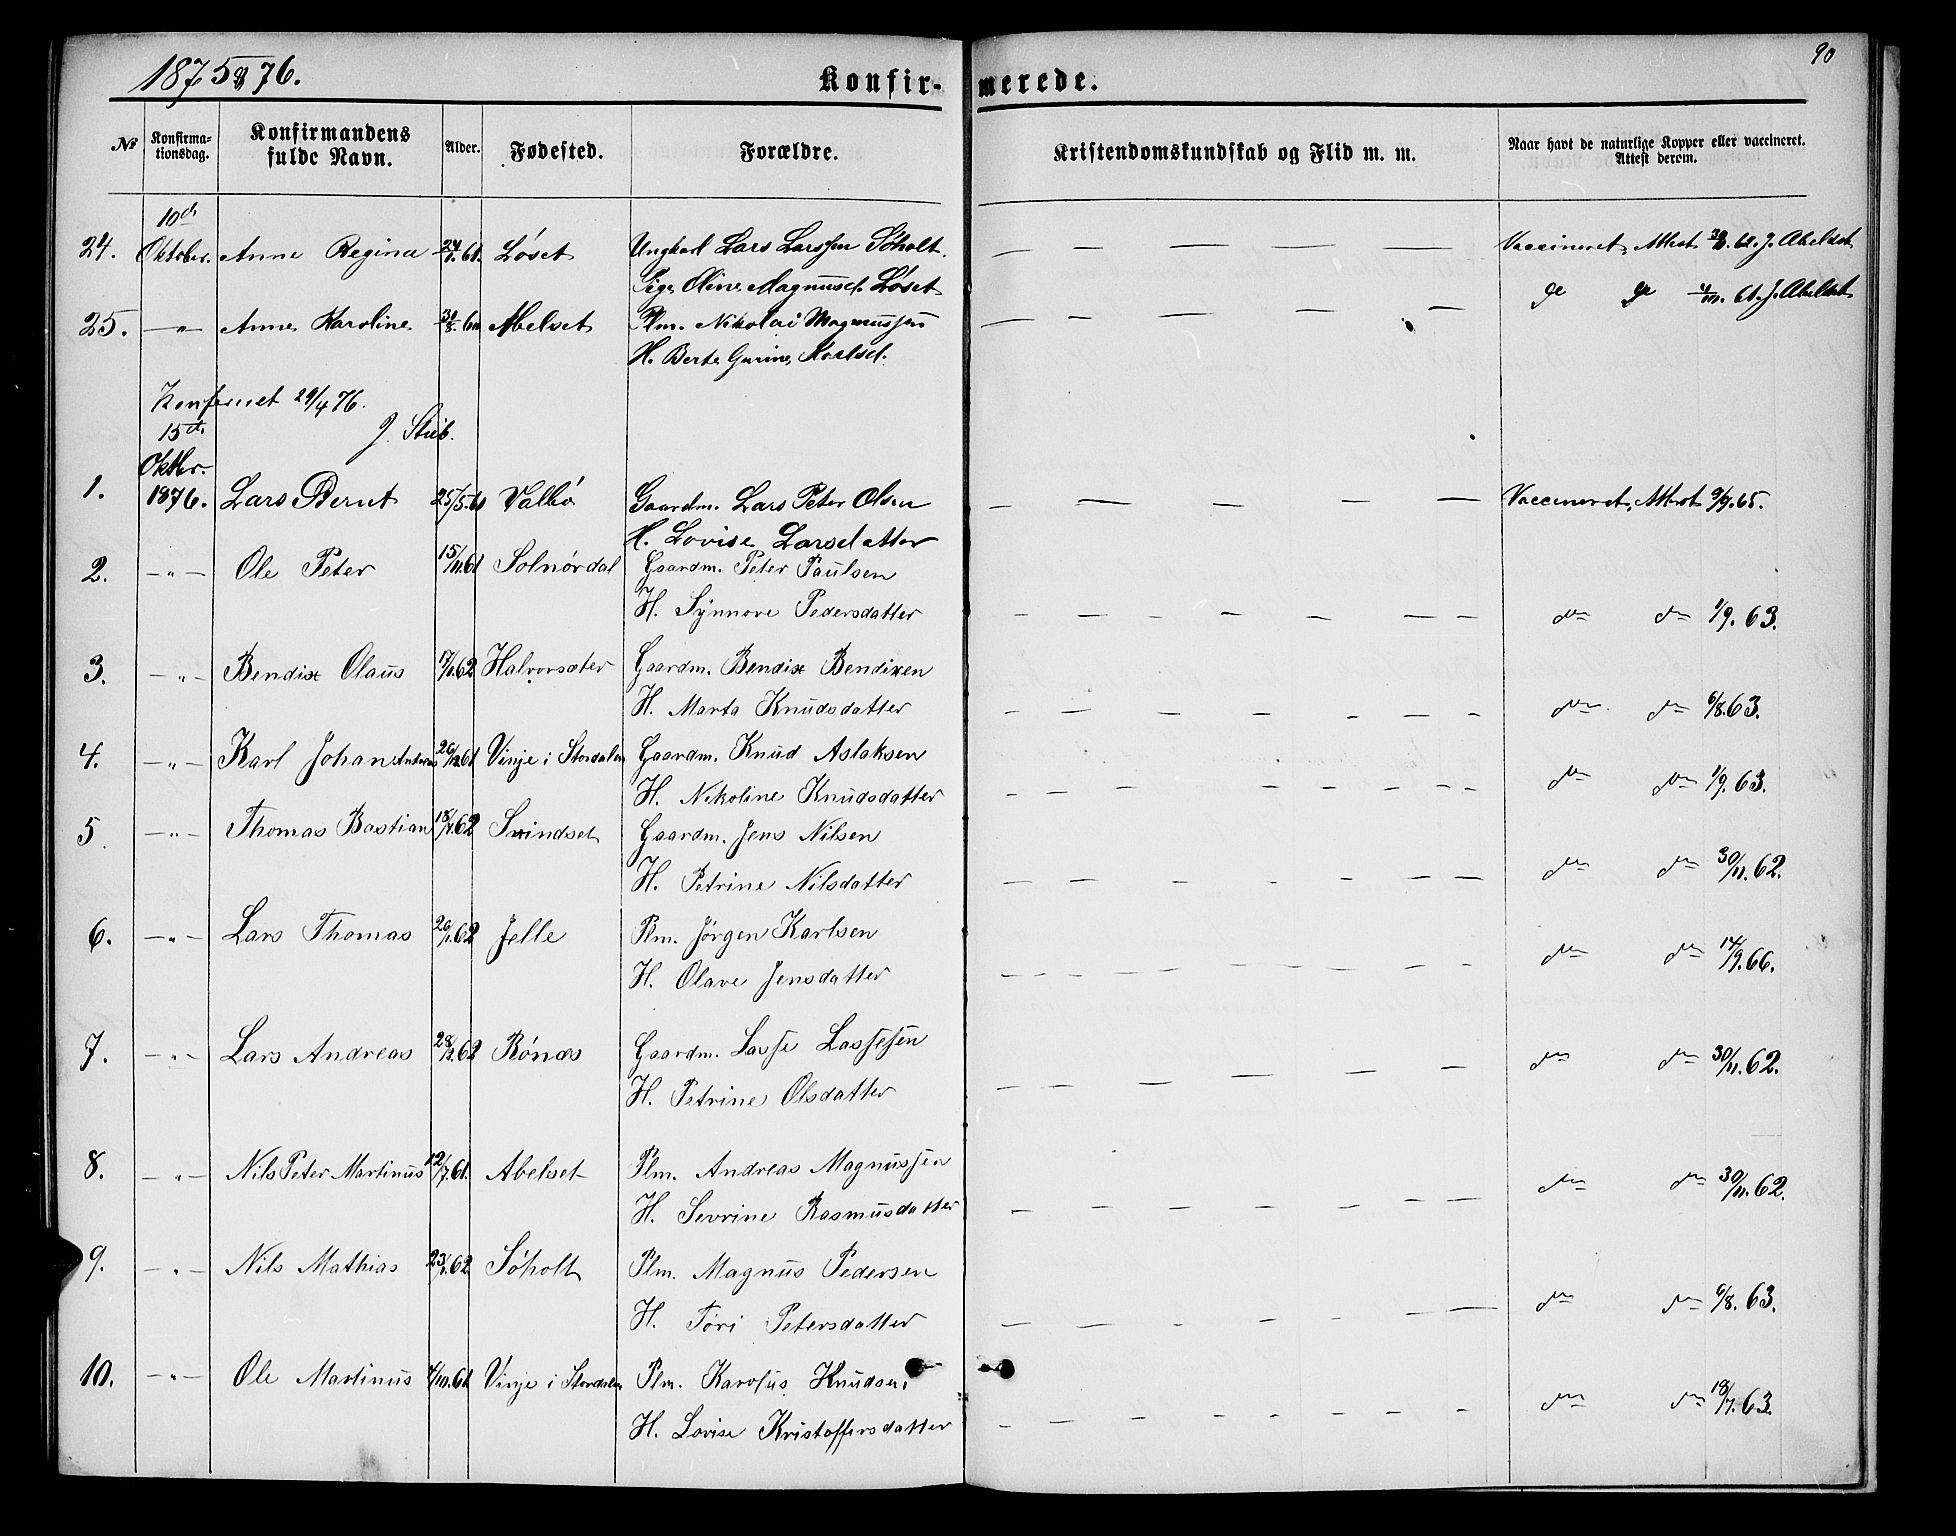 1875 & 76.
Konfir-merede.
90
№ Konfirma-tionsdag. Konfirmandens fulde Navn. Alder. Fødested. Forældre. Kristendomskundskab og Flid m. m. Naar havt de naturlige Kopper eller vaccineret. Attest derom.
10de
24. Oktober. Anne Regina 24/1.61. Løset Ungkarl Lars Larssen Søholt. — — — — — Vaccineret, Attest 62. J. Abelset
Pige Oline Magnusd. Løset
25. —"— Anne Karoline 31/8.60 Abelset Plm. Nikolai Magnussen — — — — — do do 61. J. Abelset
H. Berte Gurine Karlsd.
Konfereret 29/4 76.
J. Stub.
15de
Oktbr.
1. 1876. Lars Bernt 25/5.60 Valbø Gaardm. Lars Peter Olsen — — — — — Vaccineret, Attest 9/9.65.
H. Lovise Larsdatter
2. —"— Ole Peter 15/11.61 Solnørdal Gaardm. Peter Paulsen
H. Synnove Pedersdatter — — — — — — — do do 1/9.63.
3. —"— Bendix Olaus 17/1.62 Halvorsæter Gaardm. Bendix Bendixen
H. Marta Knudsdatter — — — — — — — do do 6/8.63.
4. —"— Karl Johan Andreas 26/12.61 Vinje i Stordalen Gaardm. Knud Aslaksen
H. Nikoline Knudsdatter — — — — — — — — do do 1/9.63.
5 —"— Thomas Bastian 18/1.62 Svindset Gaardm. Jens Nilsen
H. Petrine Nilsdatter — — — — — — — do do 30/11.62.
6. —"— Lars Thomas 26/1.62 Jelle Plm. Jørgen Karlsen
H. Olave Jensdatter — — — — — — — — — do do 14/9.66.
7. —"— Lars Andreas 28/2.62 Rønæs Gaardm. Lasse Lassesen
H. Petrine Olsdatter — — — — — — do do 30/11.62.
8. —"— Nils Peter Martinus 12/7.61. Abelset Plm. Andreas Magnussen
H. Sevrine Rasmusdatter — — — — — — — do do 30/11.62.
9. —"— Nils Mathias 23/1.62 Søholt Plm. Magnus Pedersen
H. Jóri Petersdatter — — — — — — — do do 6/8.63.
10. —"— Ole Martinus 4/10.61 Vinje i Stordalen Plm. Karolus Knudsen
H. Lovise Kristoffersdatter — — — — — — — — — do do 18/7.63.